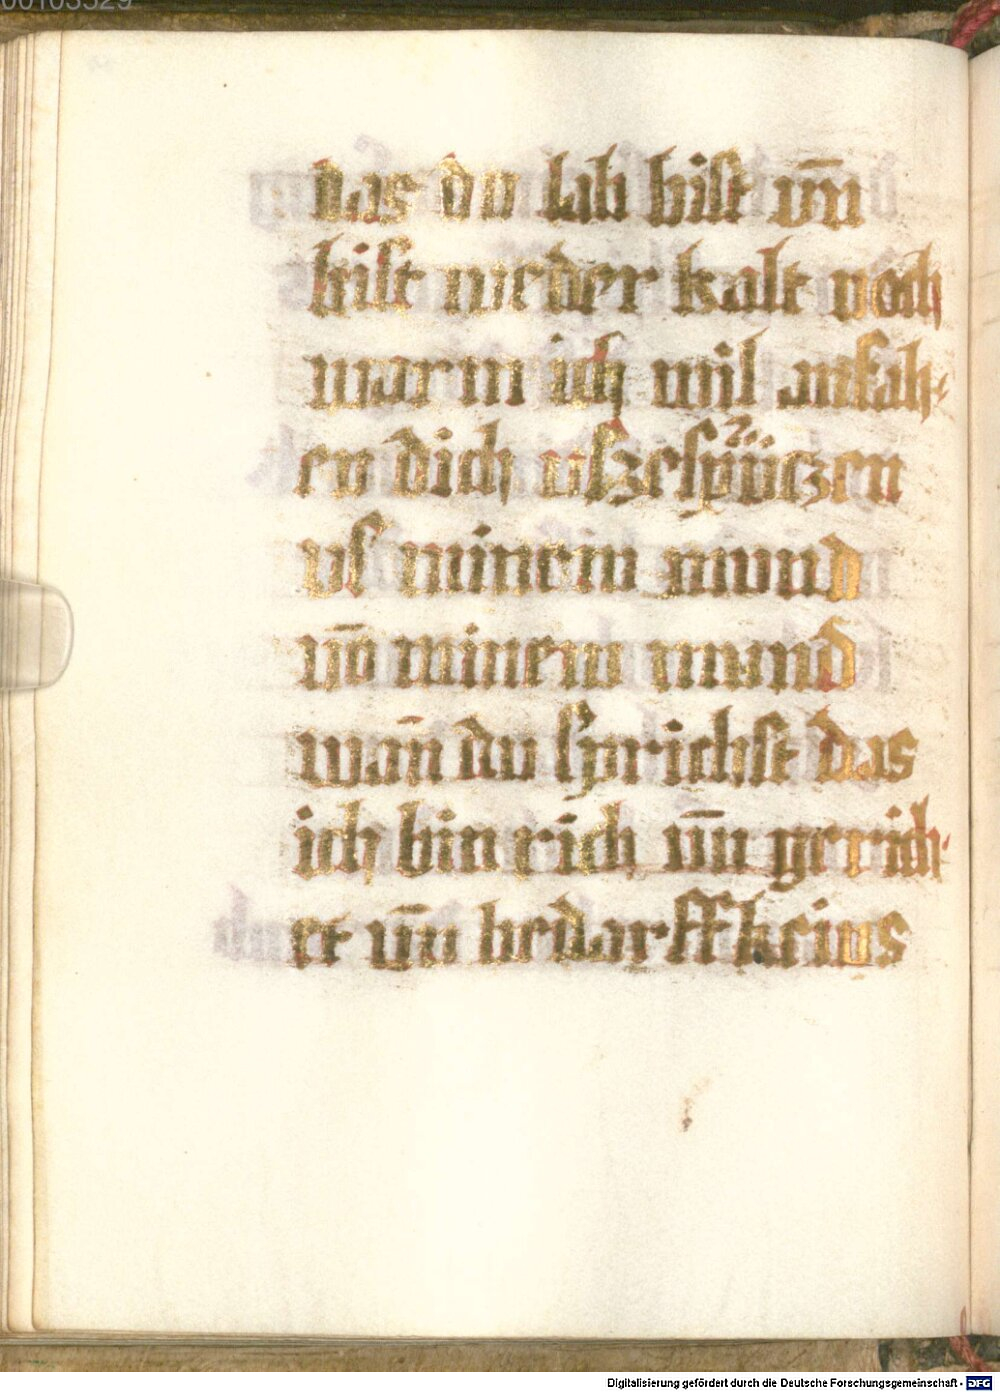 00103529
das du lab bist vn̄
bist weder kalt noch
warm ich wil anfah-
en dich vszespüczen
vs minem mund
vō minem mund
wan̄ du sprichst das
ich bin rich vn̄ gerich-
et vn̄ bedarff keins
Digitalisierung gefördert durch die Deutsche Forschungsgemeinschaft - DFG